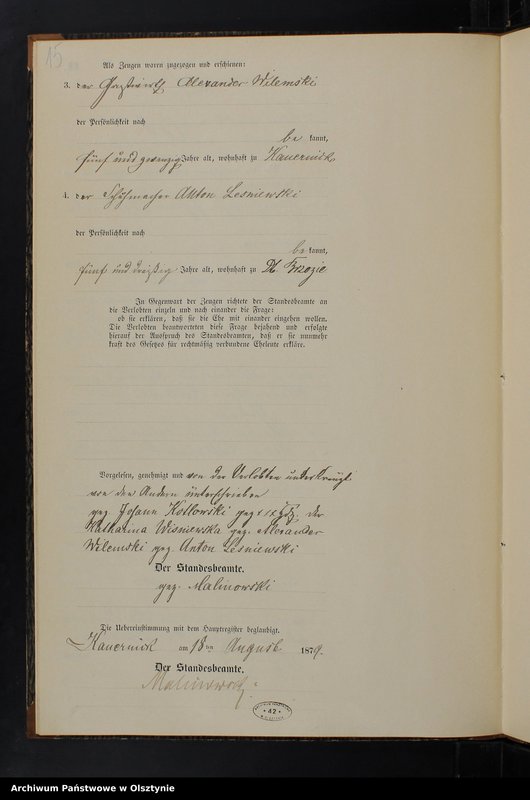 15
Als Zeugen waren zugezogen und erschienen:
3. der Gastwirth Alexander Wilemski
der Persönlichkeit nach
be kannt,
fünf und zwanzig Jahre alt, wohnhaft zu Kauernick
4. der Schuhmacher Anton Lesniewski
der Persönlichkeit nach
be kannt,
fünf und dreißig Jahre alt, wohnhaft zu Dt. Brzozie
In Gegenwart der Zeugen richtete der Standesbeamte an
die Verlobten einzeln und nach einander die Frage:
ob sie erklären, daß sie die Ehe mit einander eingehen wollen.
Die Verlobten beantworteten diese Frage bejahend und erfolgte
hierauf der Ausspruch des Standesbeamten, daß er sie nunmehr
kraft des Gesetzes für rechtmäßig verbundene Eheleute erkläre.
Vorgelesen, genehmigt und von der Verlobten unterkreuzt
von den Andern unterschrieben
gez. Johann Kotlowski gez. xxx der
Katharina Wisniewska gez. Alexander
Wilemski gez. Anton Lesniewski
Der Standesbeamte.
gez. Malinowski
Die Uebereinstimmung mit dem Hauptregister beglaubigt.
Kauernick am 18ten August 1879.
Der Standesbeamte.
Malinowski
42
Archiwum Państwowe w Olsztynie